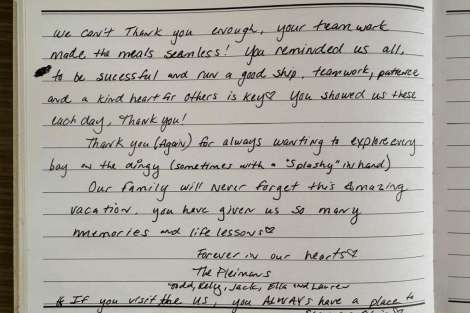 we can't Thank you enough, your teamwork
made the meals seamless! You reminded us all,
to be sucessful and run a good ship, teamwork, patience
and a kind heart for others is key♡ You showed us these
each day, Thank you!
Thank you (Again) for always wanting to explore every
bay on the dingy (sometimes with a "Splashy" in hand)
Our family will never forget this Amazing
vacation. you have given us so many
memories and life lessons♡
Forever in our hearts♡
The Pleimans
Todd, Kelly, Jack, Ella and Lauren
* If you visit the US, you ALWAYS have a place to